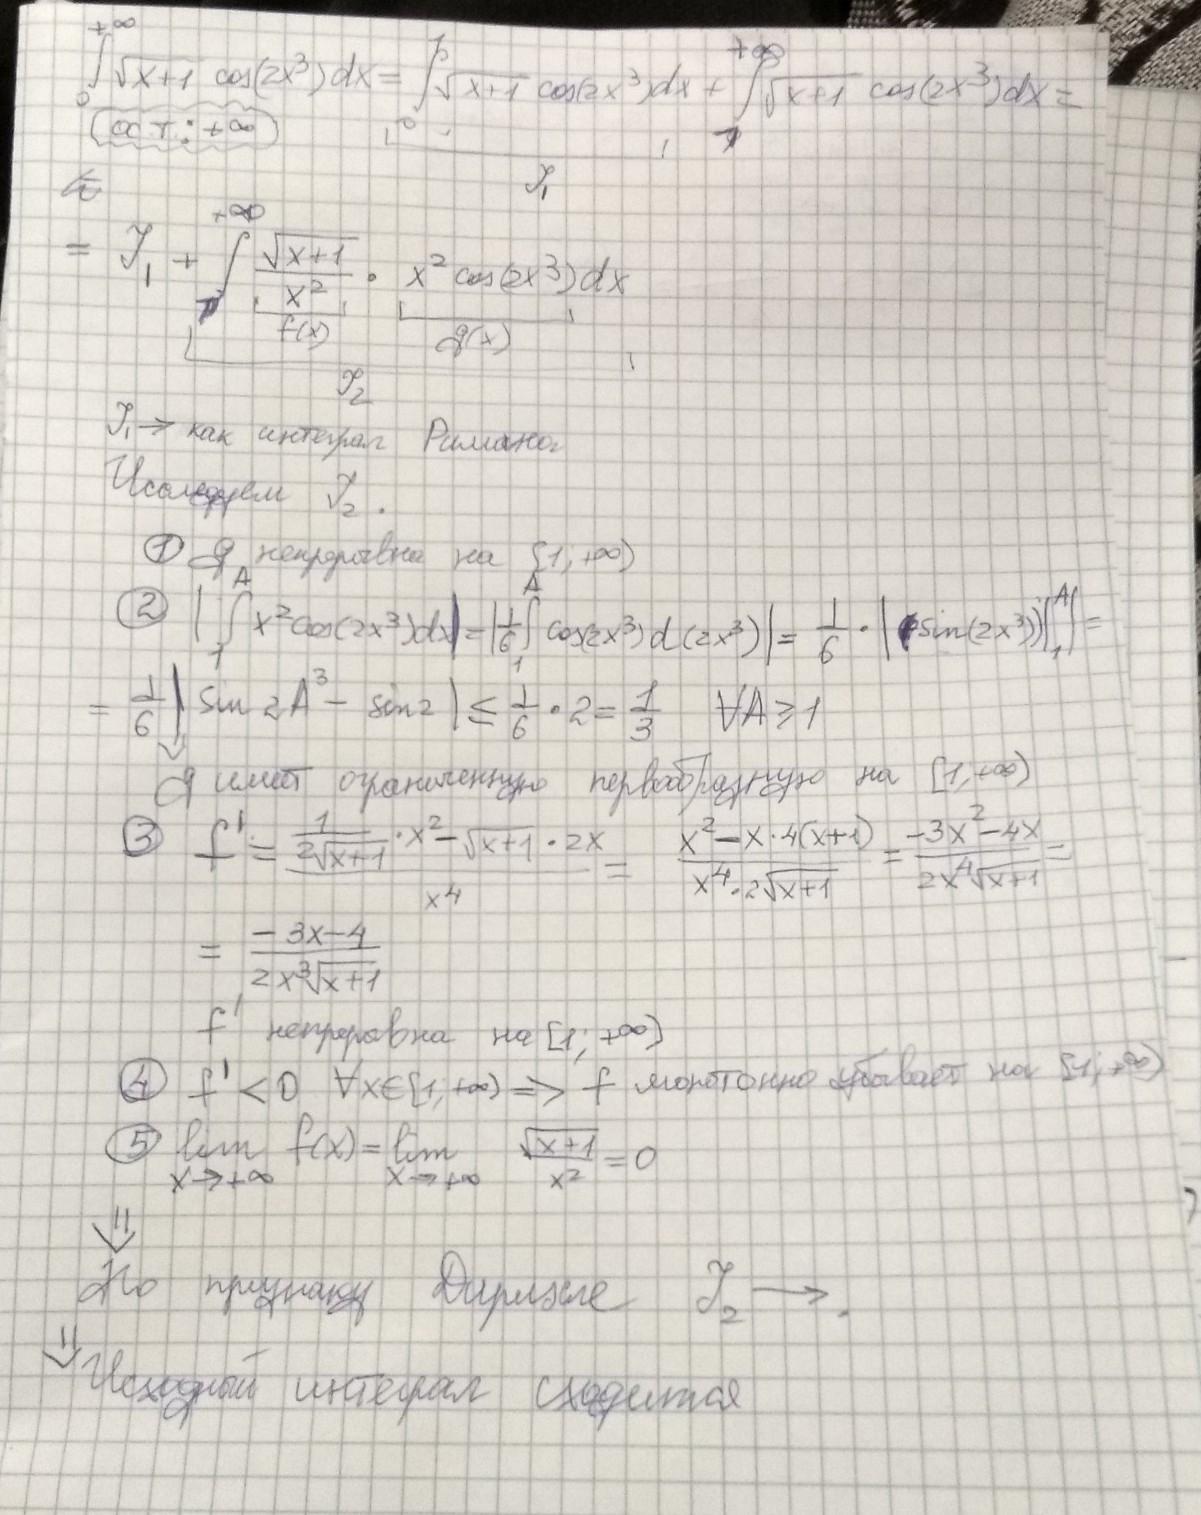 ∫₀^{+∞} √x+1 cos(2x³)dx = ∫₀^1 √x+1 cos(2x³)dx + ∫₁^{+∞} √x+1 cos(2x³)dx =
(о т: +∞)
J₁
= J₁ + ∫₁^{+∞} √x+1 / x² · x² cos(2x³)dx
f(x) g(x)
J₂
J₁ → как интеграл Римана
Исследуем J₂.
① g непрерывна на [1; +∞)
② |∫₁^A x²cos(2x³)dx| = |1/6 ∫₁^A cos(2x³)d(2x³)| = 1/6 · |(sin(2x³))|₁^A| =
= 1/6 | sin 2A³ - sin2 | ≤ 1/6 · 2 = 1/3 ∀A ≥ 1
g имеет ограниченную первообразную на [1, +∞)
③ f' = (1/(2√x+1) · x² - √x+1 · 2x) / x⁴ = (x² - x · 4(x+1)) / (x⁴ · 2√x+1) = (-3x² - 4x) / (2x⁴√x+1) =
= (-3x-4) / (2x³√x+1)
f' непрерывна на [1; +∞)
④ f' < 0 ∀x∈[1, +∞) => f монотонно убывает на [1; +∞)
⑤ lim_{x→+∞} f(x) = lim_{x→+∞} √x+1 / x² = 0
⇓
По признаку Дирихле J₂ → .
⇓ Исходный интеграл сходится